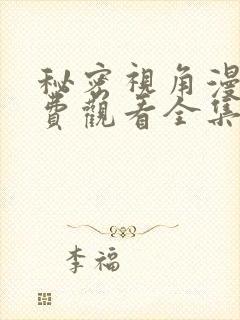 秘密視角漫
費觀看全集
李福